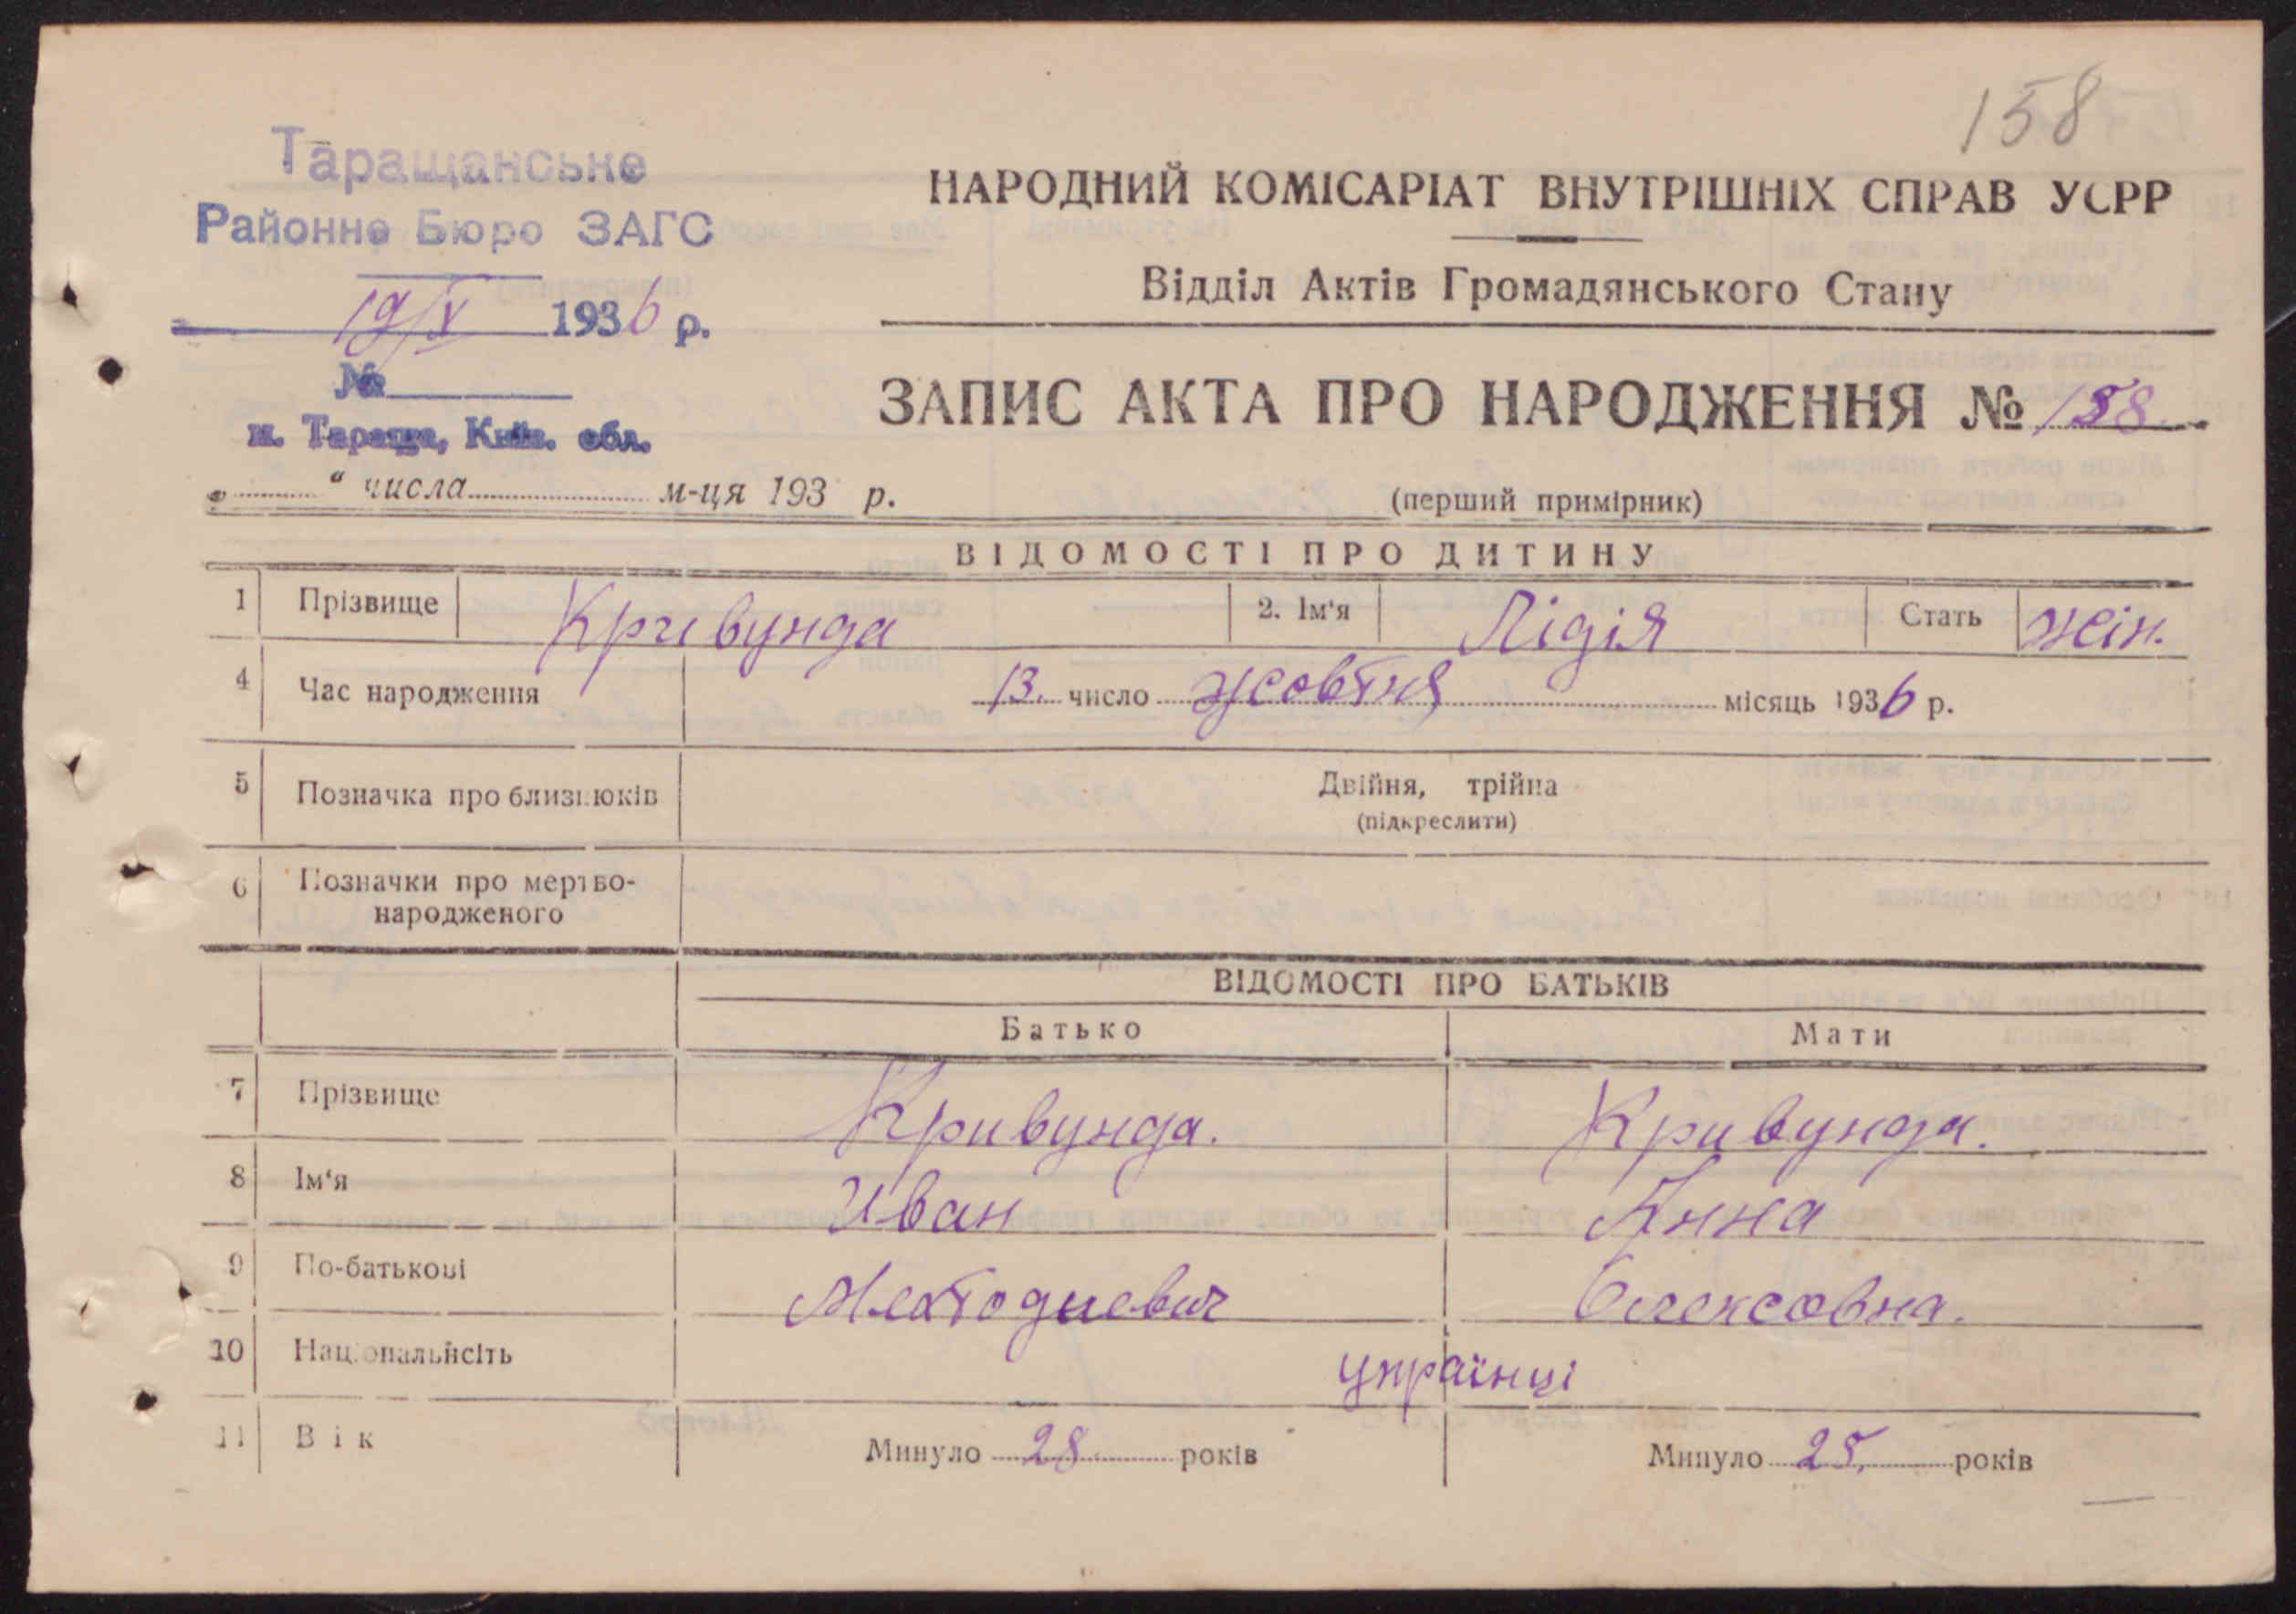 158
Таращанське
Районне Бюро ЗАГС
19/X 1936 р.
№
м. Тараща, Київ. обл.
НАРОДНИЙ КОМІСАРІАТ ВНУТРІШНІХ СПРАВ УСРР
Відділ Актів Громадянського Стану
ЗАПИС АКТА ПРО НАРОДЖЕННЯ № 158
„ “ числа м-ця 193 р.
(перший примірник)
ВІДОМОСТІ ПРО ДИТИНУ
1 Прізвище Кривунда 2. Ім'я Лідія Стать жін.
4 Час народження 13. число жовтня місяць 1936 р.
5 Позначка про близнюків Двійня, трійна
(підкреслити)
6 Позначки про мертво-
народженого
ВІДОМОСТІ ПРО БАТЬКІВ
Батько Мати
7 Прізвище Кривунда. Кривунда.
8 Ім'я Иван Анна
9 По-батькові Мефодиевич Олексовна.
10 Національність українці
11 Вік Минуло 28 років Минуло 25. років